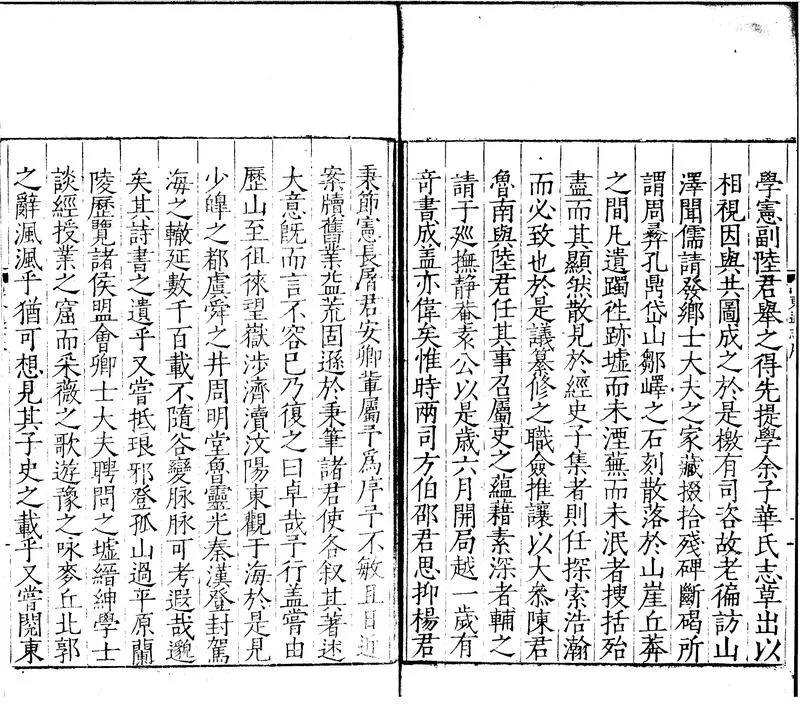 學憲副陸君舉之得先提學余子華氏志草出以
相視因與共圖成之於是檄有司咨故老徧訪山
澤聞儒請發鄉士大夫之家藏掇拾殘碑斷碣所
謂周彝孔鼎岱山鄒嶧之石刻散落於山崖丘莽
之間凡遺躅徃跡墟而未湮蕪而未泯者搜括殆
盡而其顯然散見於經史子集者則任探索浩瀚
而必致也於是議纂修之職僉推讓以大叅陳君
魯南與陸君任其事召屬吏之蘊藉素深者輔之
請于廵撫靜菴袁公以是歲六月開局越一歲有
竒書成盖亦偉矣惟時兩司方伯邵君思抑楊君
秉節憲長屠君安卿軰屬予爲序予不敏且日近
案牘舊業益荒固遜於秉筆諸君使各叙其著述
大意旣而言不容已乃復之曰卓哉予行盖嘗由
歷山至徂徠望嶽涉濟瀆汶陽東觀于海於是見
少皥之都虞舜之井周明堂魯靈光秦漢登封駕
海之轍延數千百載不隨谷變脉脉可考遐哉邈
矣其詩書之遺乎又嘗抵琅邪登孤山過平原蘭
陵歷覽諸侯盟會卿士大夫聘問之墟縉紳學士
談經授業之窟而采薇之歌遊豫之咏麥丘北郭
之辭渢渢乎猶可想見其子史之載乎又嘗閱東